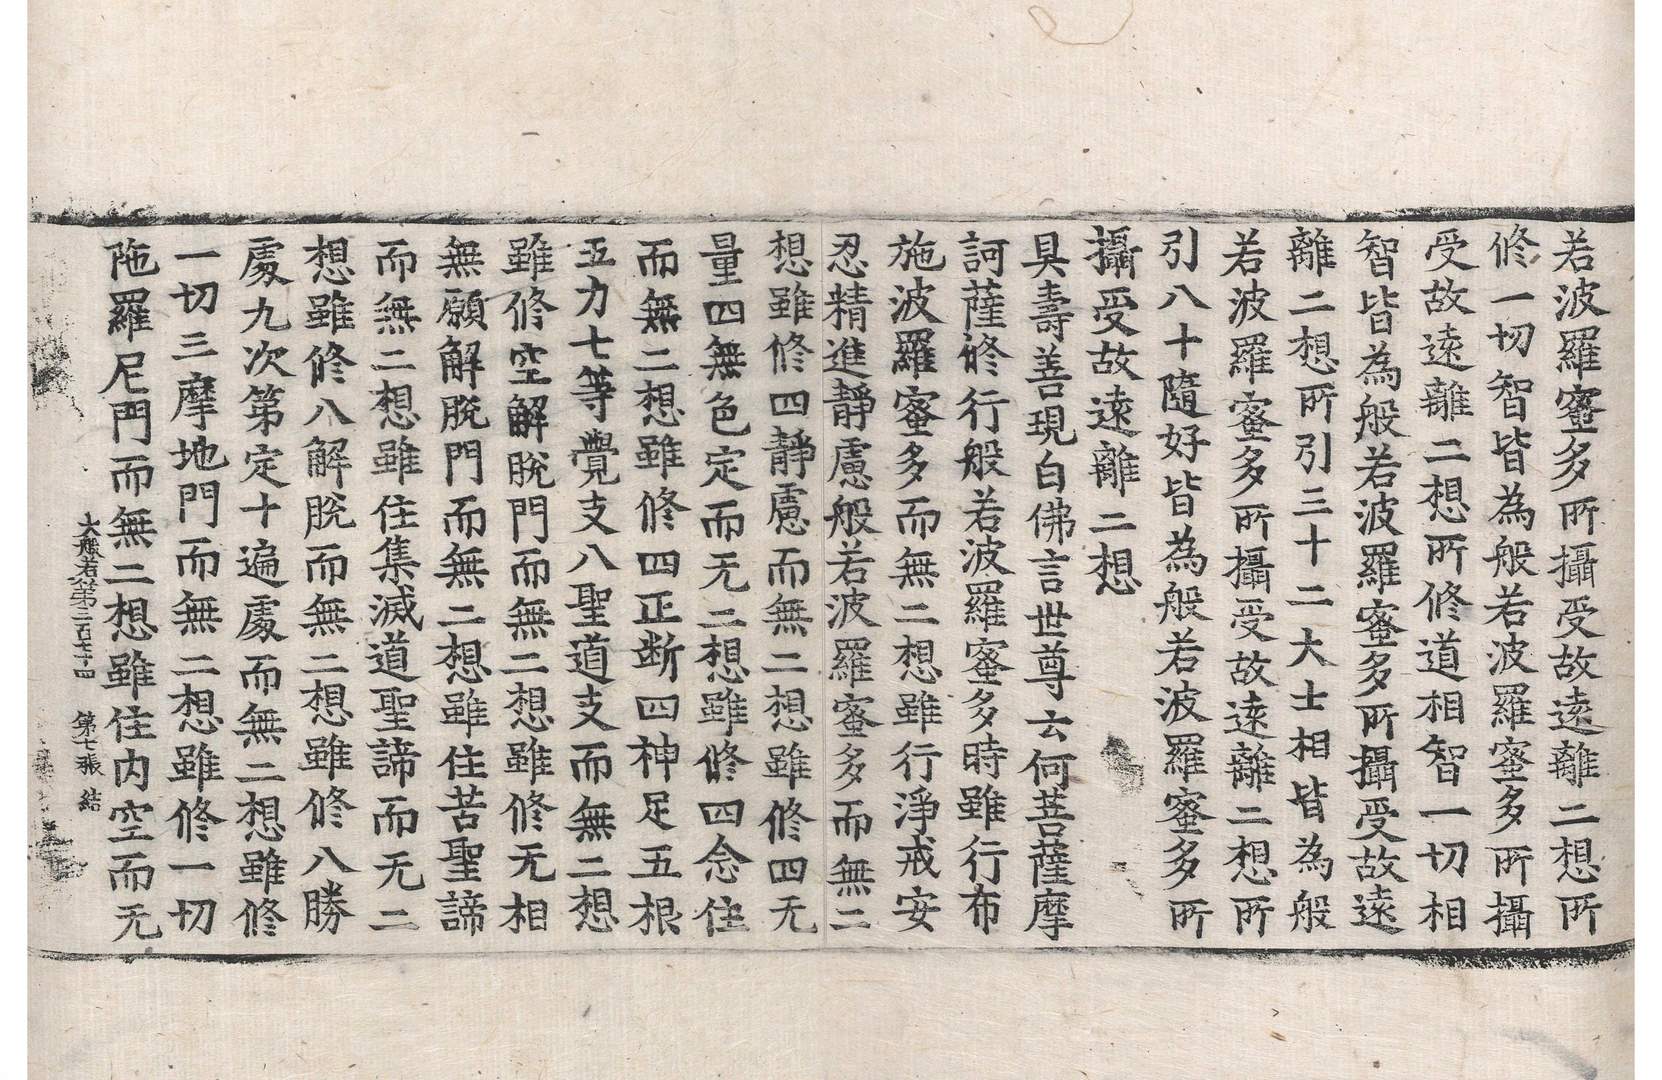 若波羅蜜多所攝受故遠離二想所
修一切智皆為般若波羅蜜多所攝
受故遠離二想所修道相智一切相
智皆為般若波羅蜜多所攝受故遠
離二想所引三十二大士相皆為般
若波羅蜜多所攝受故遠離二想所
引八十隨好皆為般若波羅蜜多所
攝受故遠離二想
具壽善現白佛言世尊云何菩薩摩
訶薩修行般若波羅蜜多時雖行布
施波羅蜜多而無二想雖行淨戒安
忍精進靜慮般若波羅蜜多而無二
想雖修四靜慮而無二想雖修四无
量四無色定而无二想雖修四念住
而無二想雖修四正断四神足五根
五力七等覺支八聖道支而無二想
雖修空解脫門而無二想雖修无相
無願解脫門而無二想雖住苦聖諦
而無二想雖住集滅道聖諦而无二
想雖修八解脫而無二想雖修八勝
處九次第定十遍處而無二想雖修
一切三摩地門而無二想雖修一切
陁羅尼門而無二想雖住內空而无
大般若第三百七十四 第七張 結